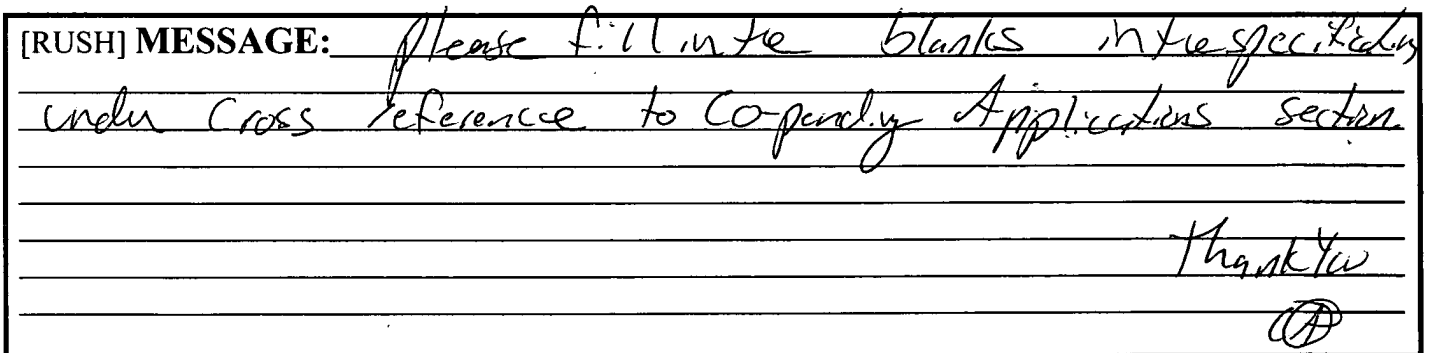 [RUSH] MESSAGE: Please fill in the blanks in the specification
under Cross reference to Co-pending Applications section.
Thank You